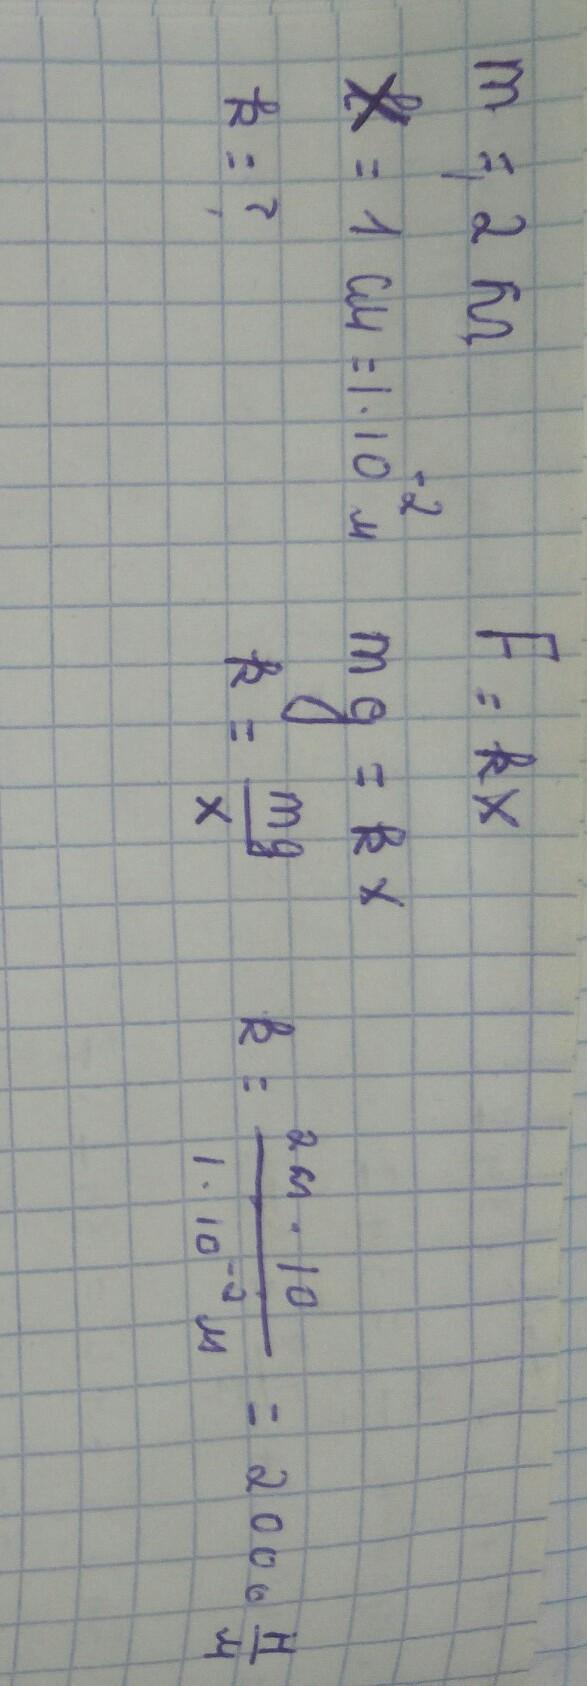 m = 2 кг
x = 1 см = 1·10⁻² м
k = ?
F = kx
mg = kx
k = mg/x
k = 2 кг · 10 / 1·10⁻² м = 2000 Н/м